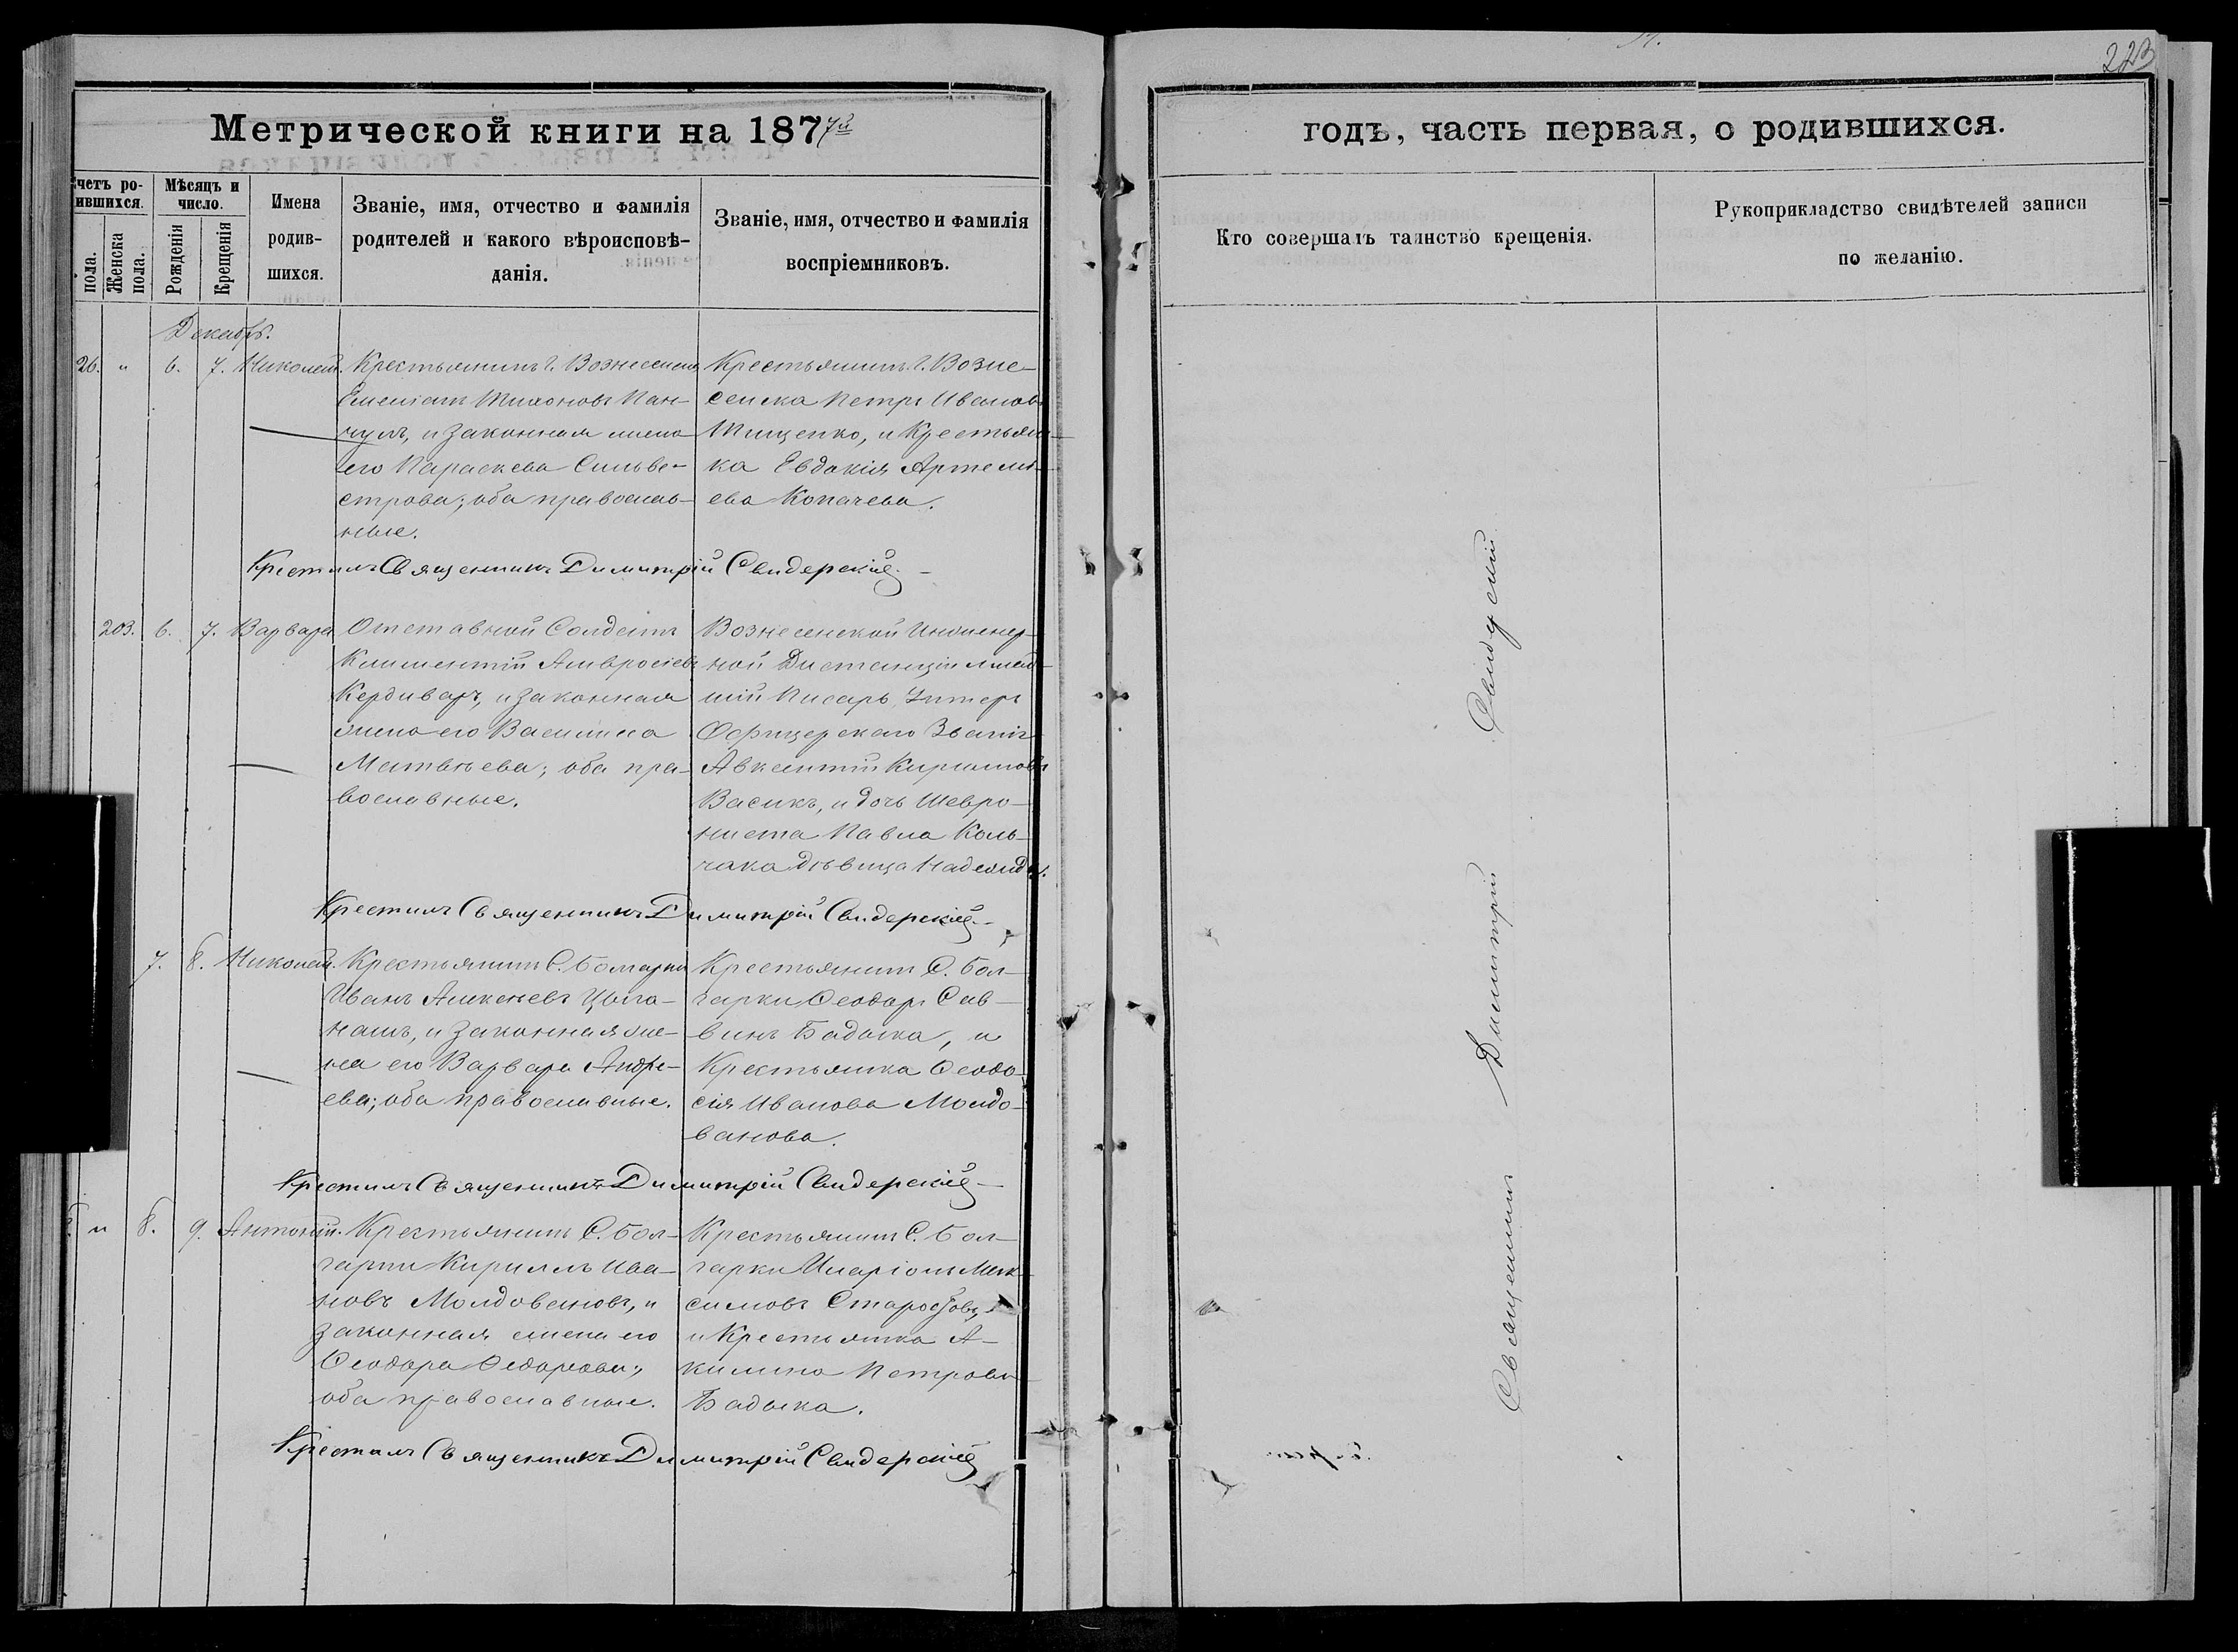 223
Метрической книги на 1877й
годъ, часть первая, о родившихся.
четъ ро-
ившихся.
пола.
Женска
пола.
Мѣсяцъ и
число.
Рожденія
Крещенія
Имена
родив-
шихся.
Званіе, имя, отчество и фамилія
родителей и какого вѣроисповѣ-
данія.
Званіе, имя, отчество и фамилія
воспріемниковъ.
Кто совершалъ таинство крещенія.
Рукоприкладство свидѣтелей записи
по желанію.
Декабрь.
26. " 6. 7. Николай.
Крестьянинъ г. Вознесенска
Тихоновъ Пан-
чулъ, и законная жена
его Параскева Сильве-
строва; оба православ-
ные.
Крестьянинъ г. Возне-
сенска Петръ Ивановъ
Тищенко, и Крестьян-
ка Евдокія Артемі-
ева Копачева.
Крестилъ Священникъ Димитрій Свидерскій.
203. 6. 7. Варвара
Отставной Солдатъ
Климентій Амвросіевъ
Кердиваръ, и законная
жена его Василиса
Матвѣева; оба пра-
вославные.
Вознесенской Инженер-
ной Дистанціи млад-
шій Писарь Унтеръ
Офицерскаго Званія
Авксентій Кирилловъ
Васикъ, и дочь Шевро-
ниста Павла Коль-
чака дѣвица Надежда.
Крестилъ Священникъ Димитрій Свидерскій.
7. 8. Николай.
Крестьянинъ С. Болгарки
Иванъ Алексѣевъ Цыга-
нашъ, и законная же-
на его Варвара Андре-
ева; оба православные.
Крестьянинъ С. Бол-
гарки Ѳеодоръ Сав-
винъ Бадыка, и
Крестьянка Ѳеодо-
сія Иванова Молдо-
ванова.
Крестилъ Священникъ Димитрій Свидерскій
" 8. 9. Антоній.
Крестьянинъ С. Бол-
гарки Кириллъ Ива-
новъ Молдовановъ, и
законная жена его
Ѳеодора Ѳедорова;
оба православные.
Крестьянинъ С. Бол-
гарки Иларіонъ Мак-
симовъ
и Крестьянка А-
килина Петрова
Бадыка.
Крестилъ Священникъ Димитрій Свидерскій
Священникъ Димитрій Свидерскій